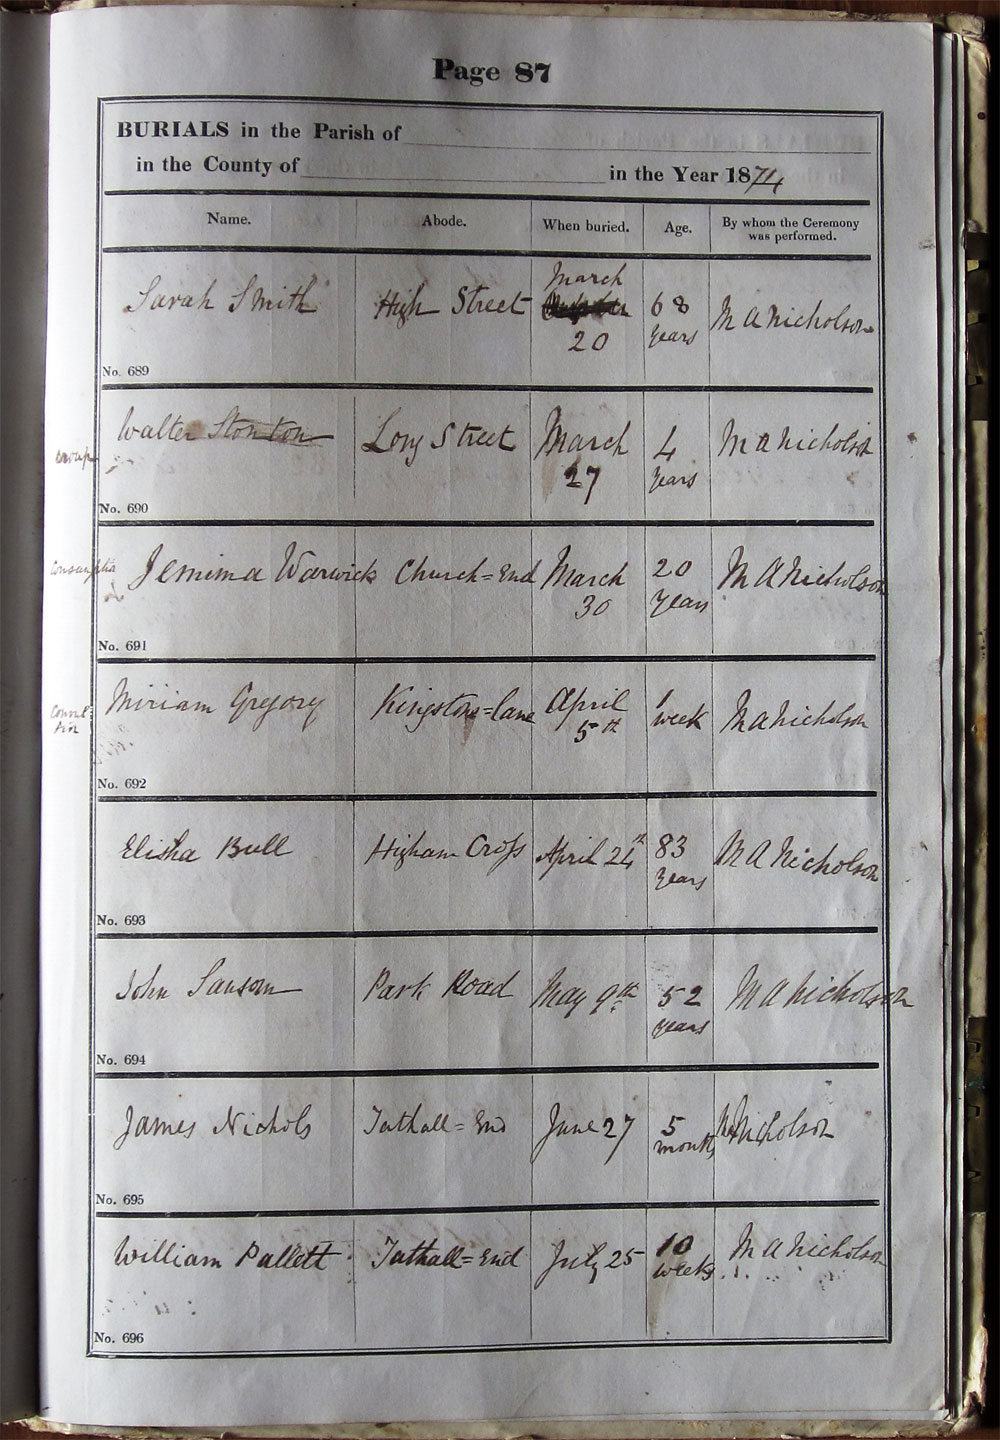 Page 87
BURIALS in the Parish of
in the County of in the Year 1874
Name. Abode. When buried. Age. By whom the Ceremony
was performed.
March
Sarah Smith High Street 68 M A Nicholson
20 years
No. 689
Walter Stonton Long Street March 4 M A Nicholson
croup 27 years
No. 690
Consumption Jemima Warwick Church=End March 20 M A Nicholson
30 years
No. 691
Miriam Gregory Kingston=lane April 1 M A Nicholson
5th week
No. 692
Elisha Bull Higham Cross April 24th 83 M A Nicholson
years
No. 693
John Sansom Park Road May 9th 52 M A Nicholson
years
No. 694
James Nichols Tathall=End June 27 5 Nicholson
months
No. 695
William Pallett Tathall=End July 25 10 M A Nicholson
weeks
No. 696